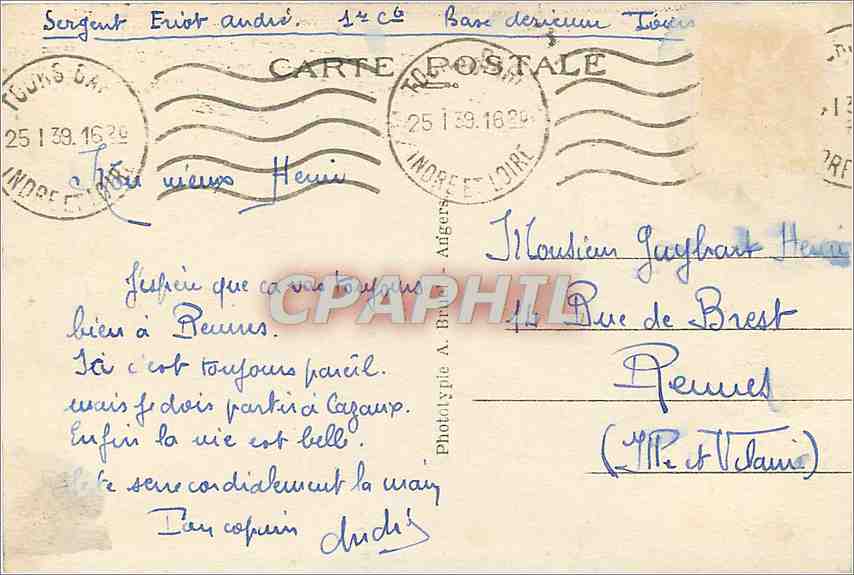 Sergent Eriot andré. 1re Cie Base aérienne Tours
CARTE POSTALE
TOURS GARE
25 I 39. 16 30
INDRE ET LOIRE
TOURS GARE
25 I 39. 16 30
INDRE ET LOIRE
Mon vieux Henri
J'espère que ça va toujours
bien à Rennes.
Ici c'est toujours pareil.
mais je dois partir à Cazaux.
Enfin la vie est belle.
Je te serre cordialement la main
Ton copain André
Phototypie A. Bruel - Angers
Monsieur Henri
14 Rue de Brest
Rennes
(Ille et Vilaine)
CPAPHIL